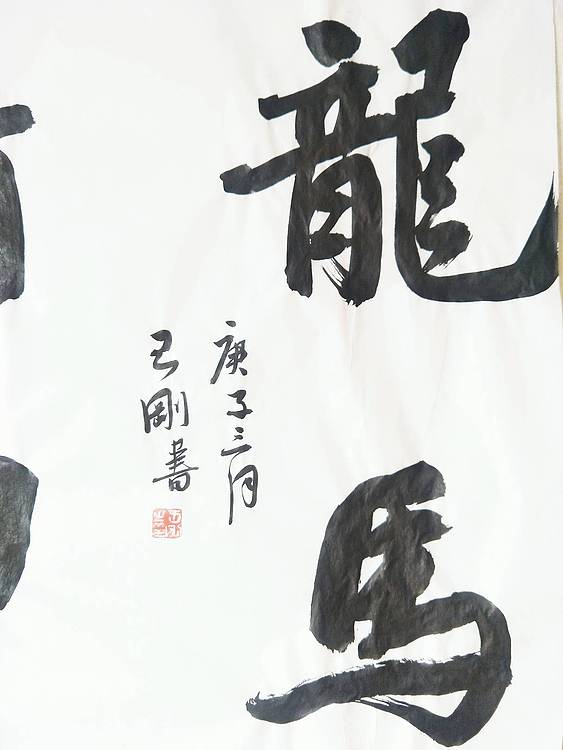 龍馬
庚子三月
剛書